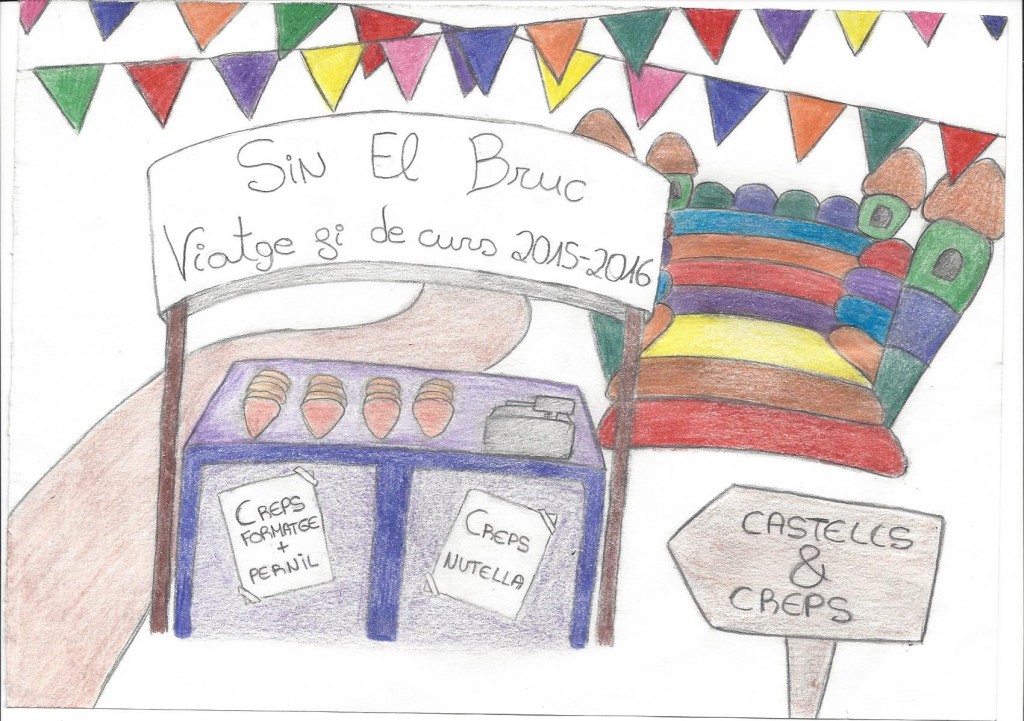 Sin El Bruc
Viatge fi de curs 2015-2016
CREPS
FORMATGE
+
PERNIL
CREPS
NUTELLA
CASTELLS
&
CREPS